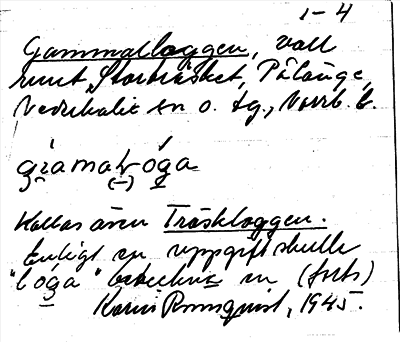 1-4
Gammalloggen, vall
runt Storträsket, Pålänge,
Nederkalix sn o. tg., Norrb. l.
gramaló̱ga
(-)
Kallas även Träskloggen.
Enligt en uppgift skulle
"lóga" beteckna en (forts)
Karin Rönnquist, 1945.